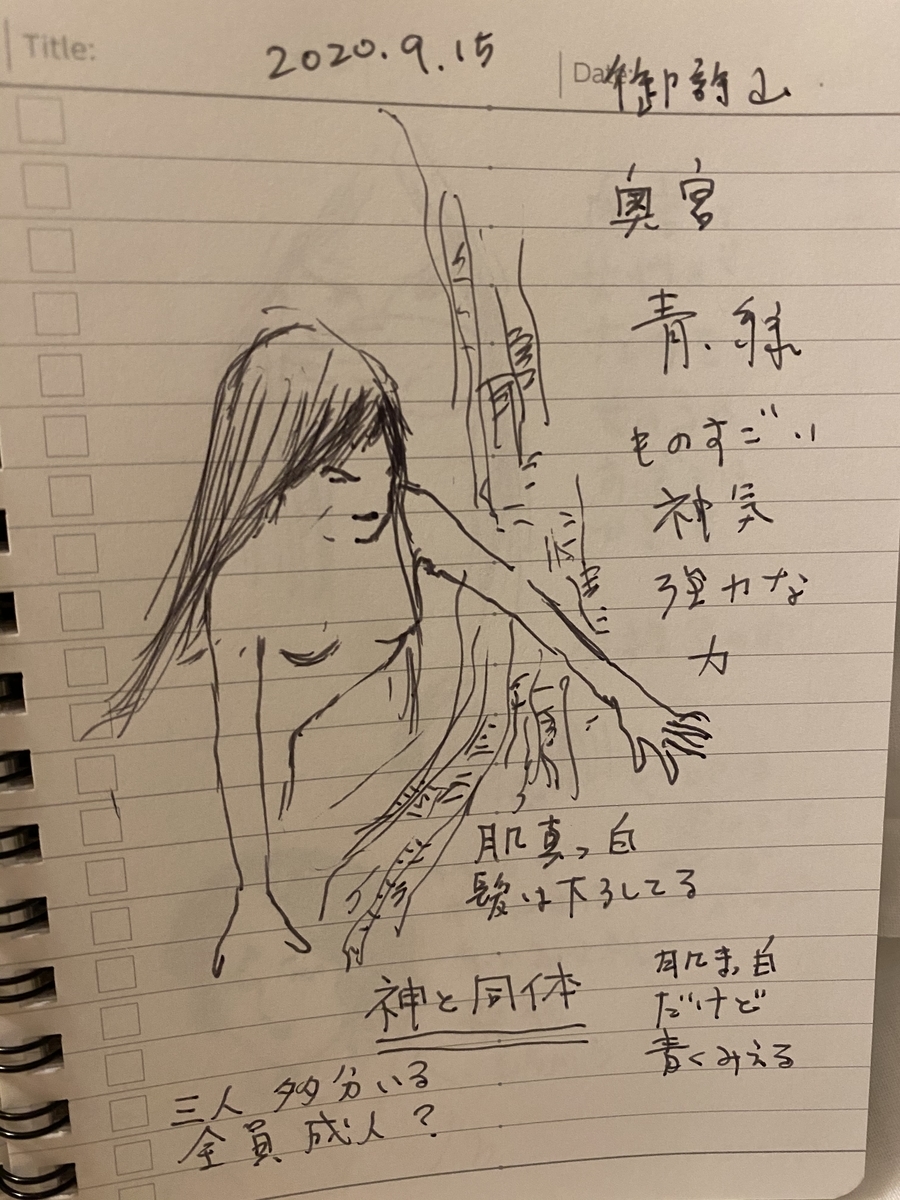 Title:
2020.9.15
Date:
御許山
奥宮
青、緑
ものすごい
神気
強力な
力
肌真っ白
髪は下ろしてる
神と同体
肌まっ白
だけど
青くみえる
三人 多分いる
全員 成人?